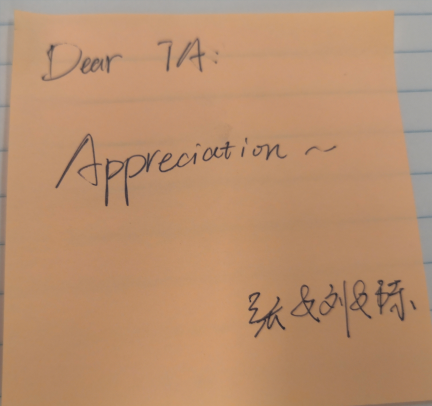 Dear TA:
Appreciation ~
张&刘&陈